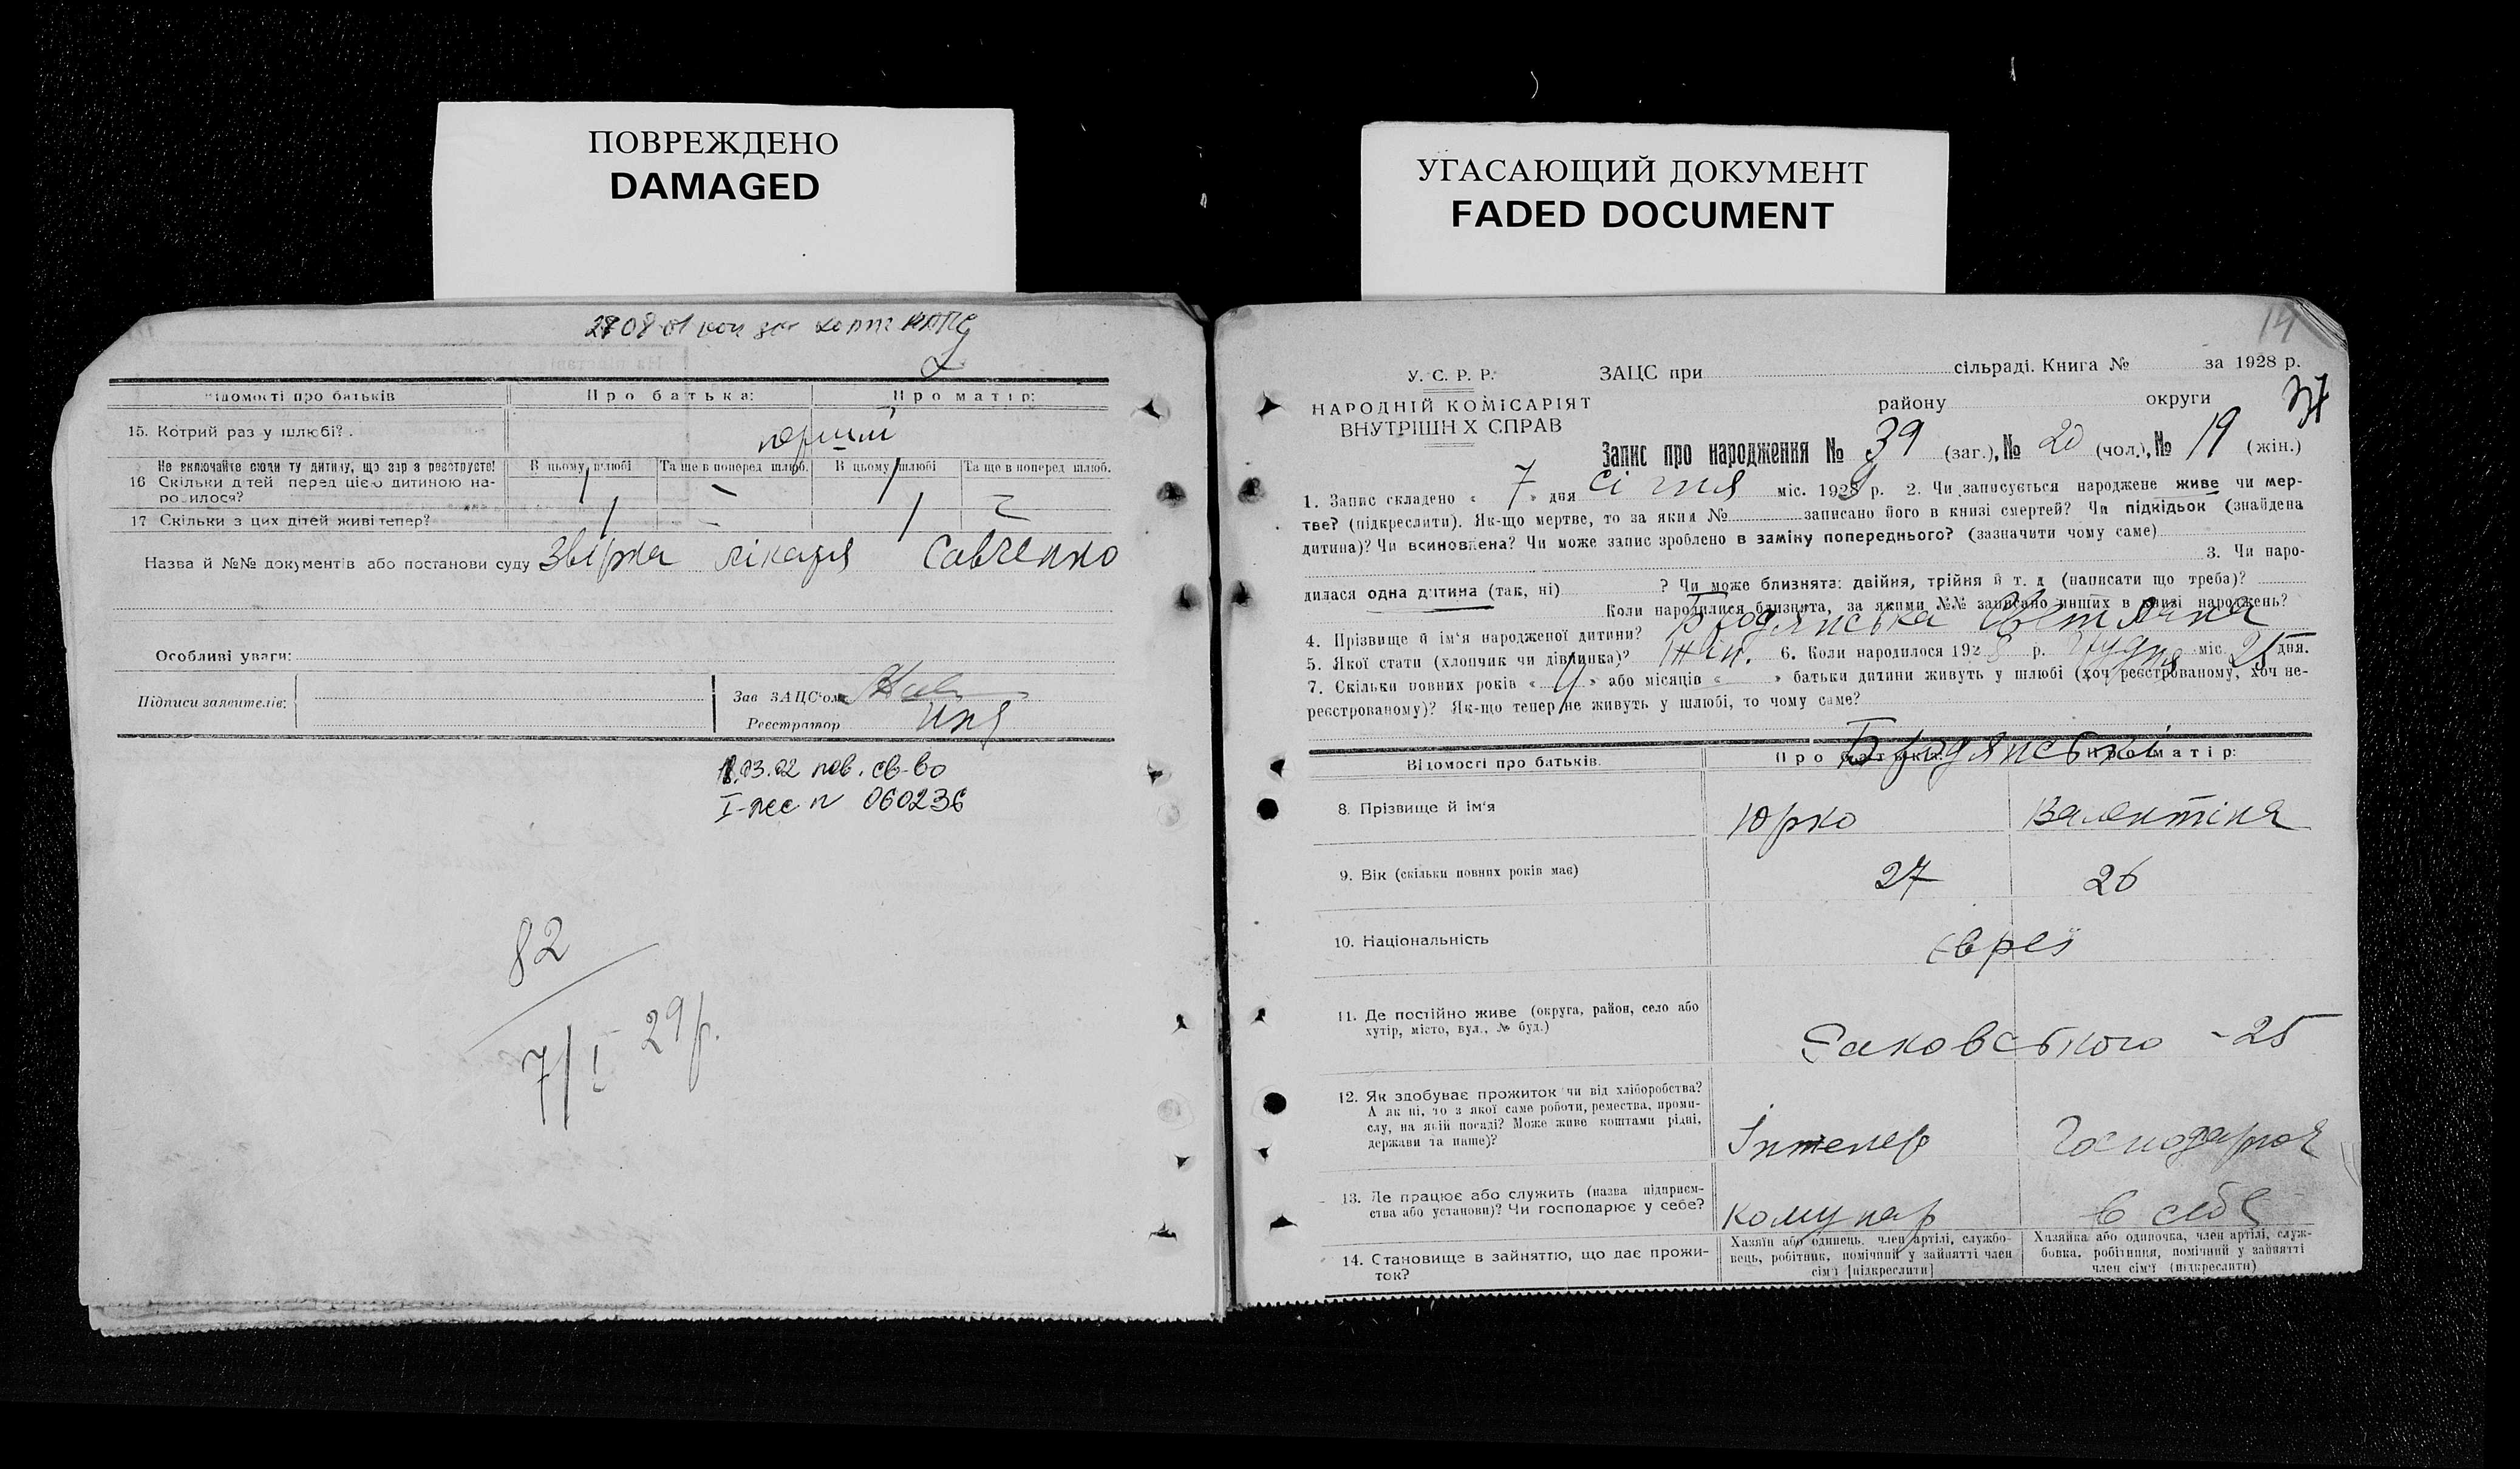 ПОВРЕЖДЕНО
DAMAGED
УГАСАЮЩИЙ ДОКУМЕНТ
FADED DOCUMENT
Відомості про батьків
Про батька:
Про матір:
15. Котрий раз у шлюбі?
перший
Не включайте сюди ту дитину, що зараз реєструєте!
16 Скільки дітей перед цією дитиною на-
родилося?
В цьому шлюбі
Та ще в поперед шлюб.
В цьому шлюбі
Та ще в поперед шлюб.
1 – 1
17 Скільки з цих дітей живі тепер?
1 – 1 –
Назва й №№ документів або постанови суду Звірка лікаря Савченко
Особливі уваги:
Підписи заявителів:
Зав ЗАЦС'ом
Реєстратор
03.02 пов. св-во
I-ЖС № 060236
82
7/I 29р.
14
У. С. Р. Р.
НАРОДНІЙ КОМІСАРІЯТ
ВНУТРІШНІХ СПРАВ
ЗАЦС при сільраді. Книга № за 1928 р.
району округи
37
Запис про народження № 39 (заг.), № 20 (чол.), № 19 (жін.)
1. Запис складено « 7 » дня січня міс. 1929 р. 2. Чи записується народжене живе чи мер-
тве? (підкреслити). Як-що мертве, то за яким № записано його в книзі смертей? Чи підкідьок (знайдена
дитина)? Чи всиновлена? Чи може запис зроблено в заміну попереднього? (зазначити чому саме)
3. Чи наро-
дилася одна дитина (так, ні) ? Чи може близнята: двійня, трійня й т. д (написати що треба)?
Коли народилися близнята, за якими №№ записано инших в книзі народжень?
4. Прізвище й ім'я народженої дитини? Бродянська Світлана
5. Якої стати (хлопчик чи дівчинка)? жін. 6. Коли народилося 1928 р. грудня міс. 25 дня.
7. Скільки повних років « 4 » або місяців « » батьки дитини живуть у шлюбі (хоч реєстрованому, хоч не-
реєстрованому)? Як-що тепер не живуть у шлюбі, то чому саме?
Відомості про батьків.
Про батька:
Про матір:
Бродянські
8. Прізвище й ім'я
Юрко
Валентіна
9. Вік (скільки повних років має)
27
26
10. Національність
євреї
11. Де постійно живе (округа, район, село або
хутір, місто, вул., № буд.)
Раковського - 25
12. Як здобуває прожиток чи від хліборобства?
А як ні, то з якої саме роботи, ремества, проми-
слу, на якій посаді? Може живе коштами рідні,
держави та инше)?
Господарка
13. Де працює або служить (назва підприєм-
ства або установи)? Чи господарює у себе?
Комунар
в себе
14. Становище в зайняттю, що дає прожи-
ток?
Хазяїн або одинець, член артілі, службо-
вець, робітник, помічний у зайнятті член
сім'ї [підкреслити]
Хазяйка або одиночка, член артілі, служ-
бовка, робітниця, помічний у зайнятті
член сім'ї (підкреслити)